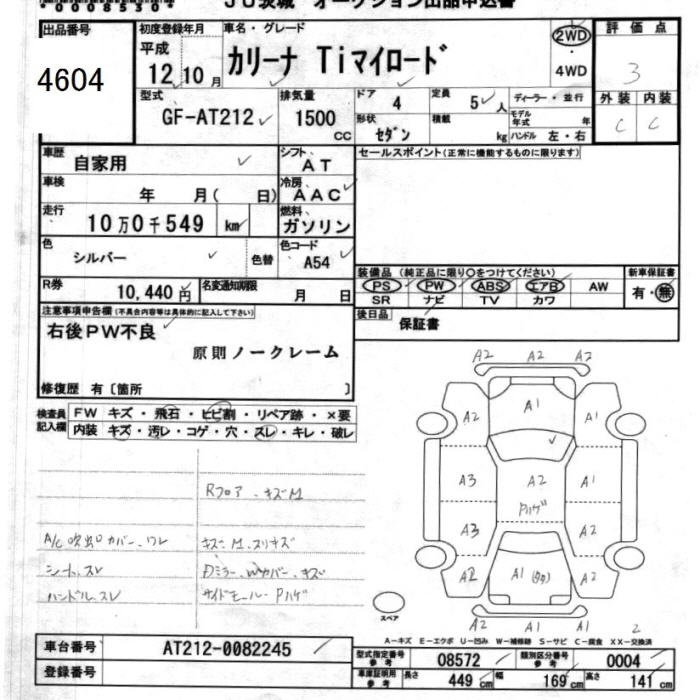 00085504
JU茨城 オークション出品申込書
出品番号
4604
初度登録年月
平成
12年10月
車名・グレード
カリーナ Tiマイロード
2WD
・
4WD
評価点
3
外装 内装
C C
型式
GF-AT212
排気量
1500
CC
ドア 4
定員 5人
ディーラー・並行
形状 セダン
積載 kg
モデル年式 年
ハンドル 左・右
車歴
自家用
シフト
AT
セールスポイント(正常に機能するものに限ります)
車検
年 月( 日)
冷房
AAC
走行
10万0千549 km
燃料
ガソリン
色
シルバー
色替
色コード
A54
R券
10,440円
名変通知期限
月 日
装備品 (純正品に限り○をつけてください)
PS PW ABS エアB AW
SR ナビ TV カワ
新車保証書
有・無
後日品
保証書
注意事項申告欄(不具合内容等は具体的に記入して下さい)
右後PW不良
原則ノークレーム
修復歴 有〔箇所 〕
検査員記入欄
FW キズ・飛石・ヒビ割・リペア跡・×要
内装 キズ・汚レ・コゲ・穴・スレ・キレ・破レ
Rフロア、キズM
A/C吹出カバー、ワレ
キズM、スリキズ
シート、スレ
Dミラー、Wカバー、キズ
ハンドル、スレ
サイドモール、Pハゲ
A2 A2 A2
A2 A1 A2
A3 A2 A1
Pハゲ
A3 A2
A2 A1 A2
A2 A1 A1
2
スペア
A-キズ E-エクボ U-凹み W-補修跡 S-サビ C-腐食 XX-交換済
車台番号
AT212-0082245
登録番号
型式指定番号
参考
08572
類別区分番号
参考
0004
車庫証明用
参考
長さ 449cm 幅 169cm 高さ 141cm